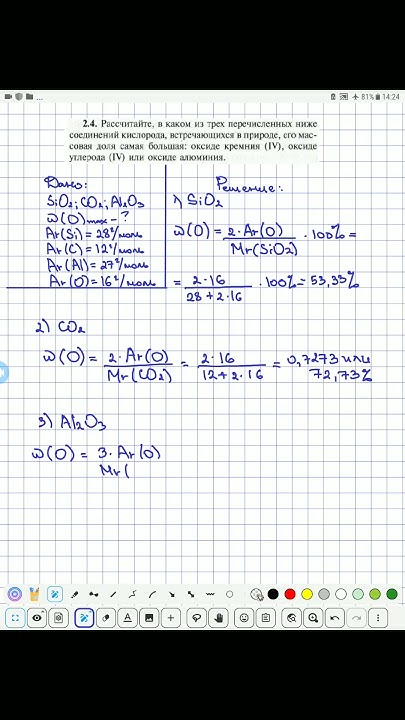 ... 81% 14:24
2.4. Рассчитайте, в каком из трех перечисленных ниже
соединений кислорода, встречающихся в природе, его мас-
совая доля самая большая: оксиде кремния (IV), оксиде
углерода (IV) или оксиде алюминия.
Дано:
SiO2; CO2; Al2O3
ω(O)max - ?
Ar(Si) = 28 г/моль
Ar(C) = 12 г/моль
Ar(Al) = 27 г/моль
Ar(O) = 16 г/моль
Решение:
1) SiO2
ω(O) = 2·Ar(O) / Mr(SiO2) · 100% =
= 2·16 / 28+2·16 · 100% = 53,33%
2) CO2
ω(O) = 2·Ar(O) / Mr(CO2) = 2·16 / 12+2·16 = 0,7273 или
72,73%
3) Al2O3
ω(O) = 3·Ar(O)
Mr(